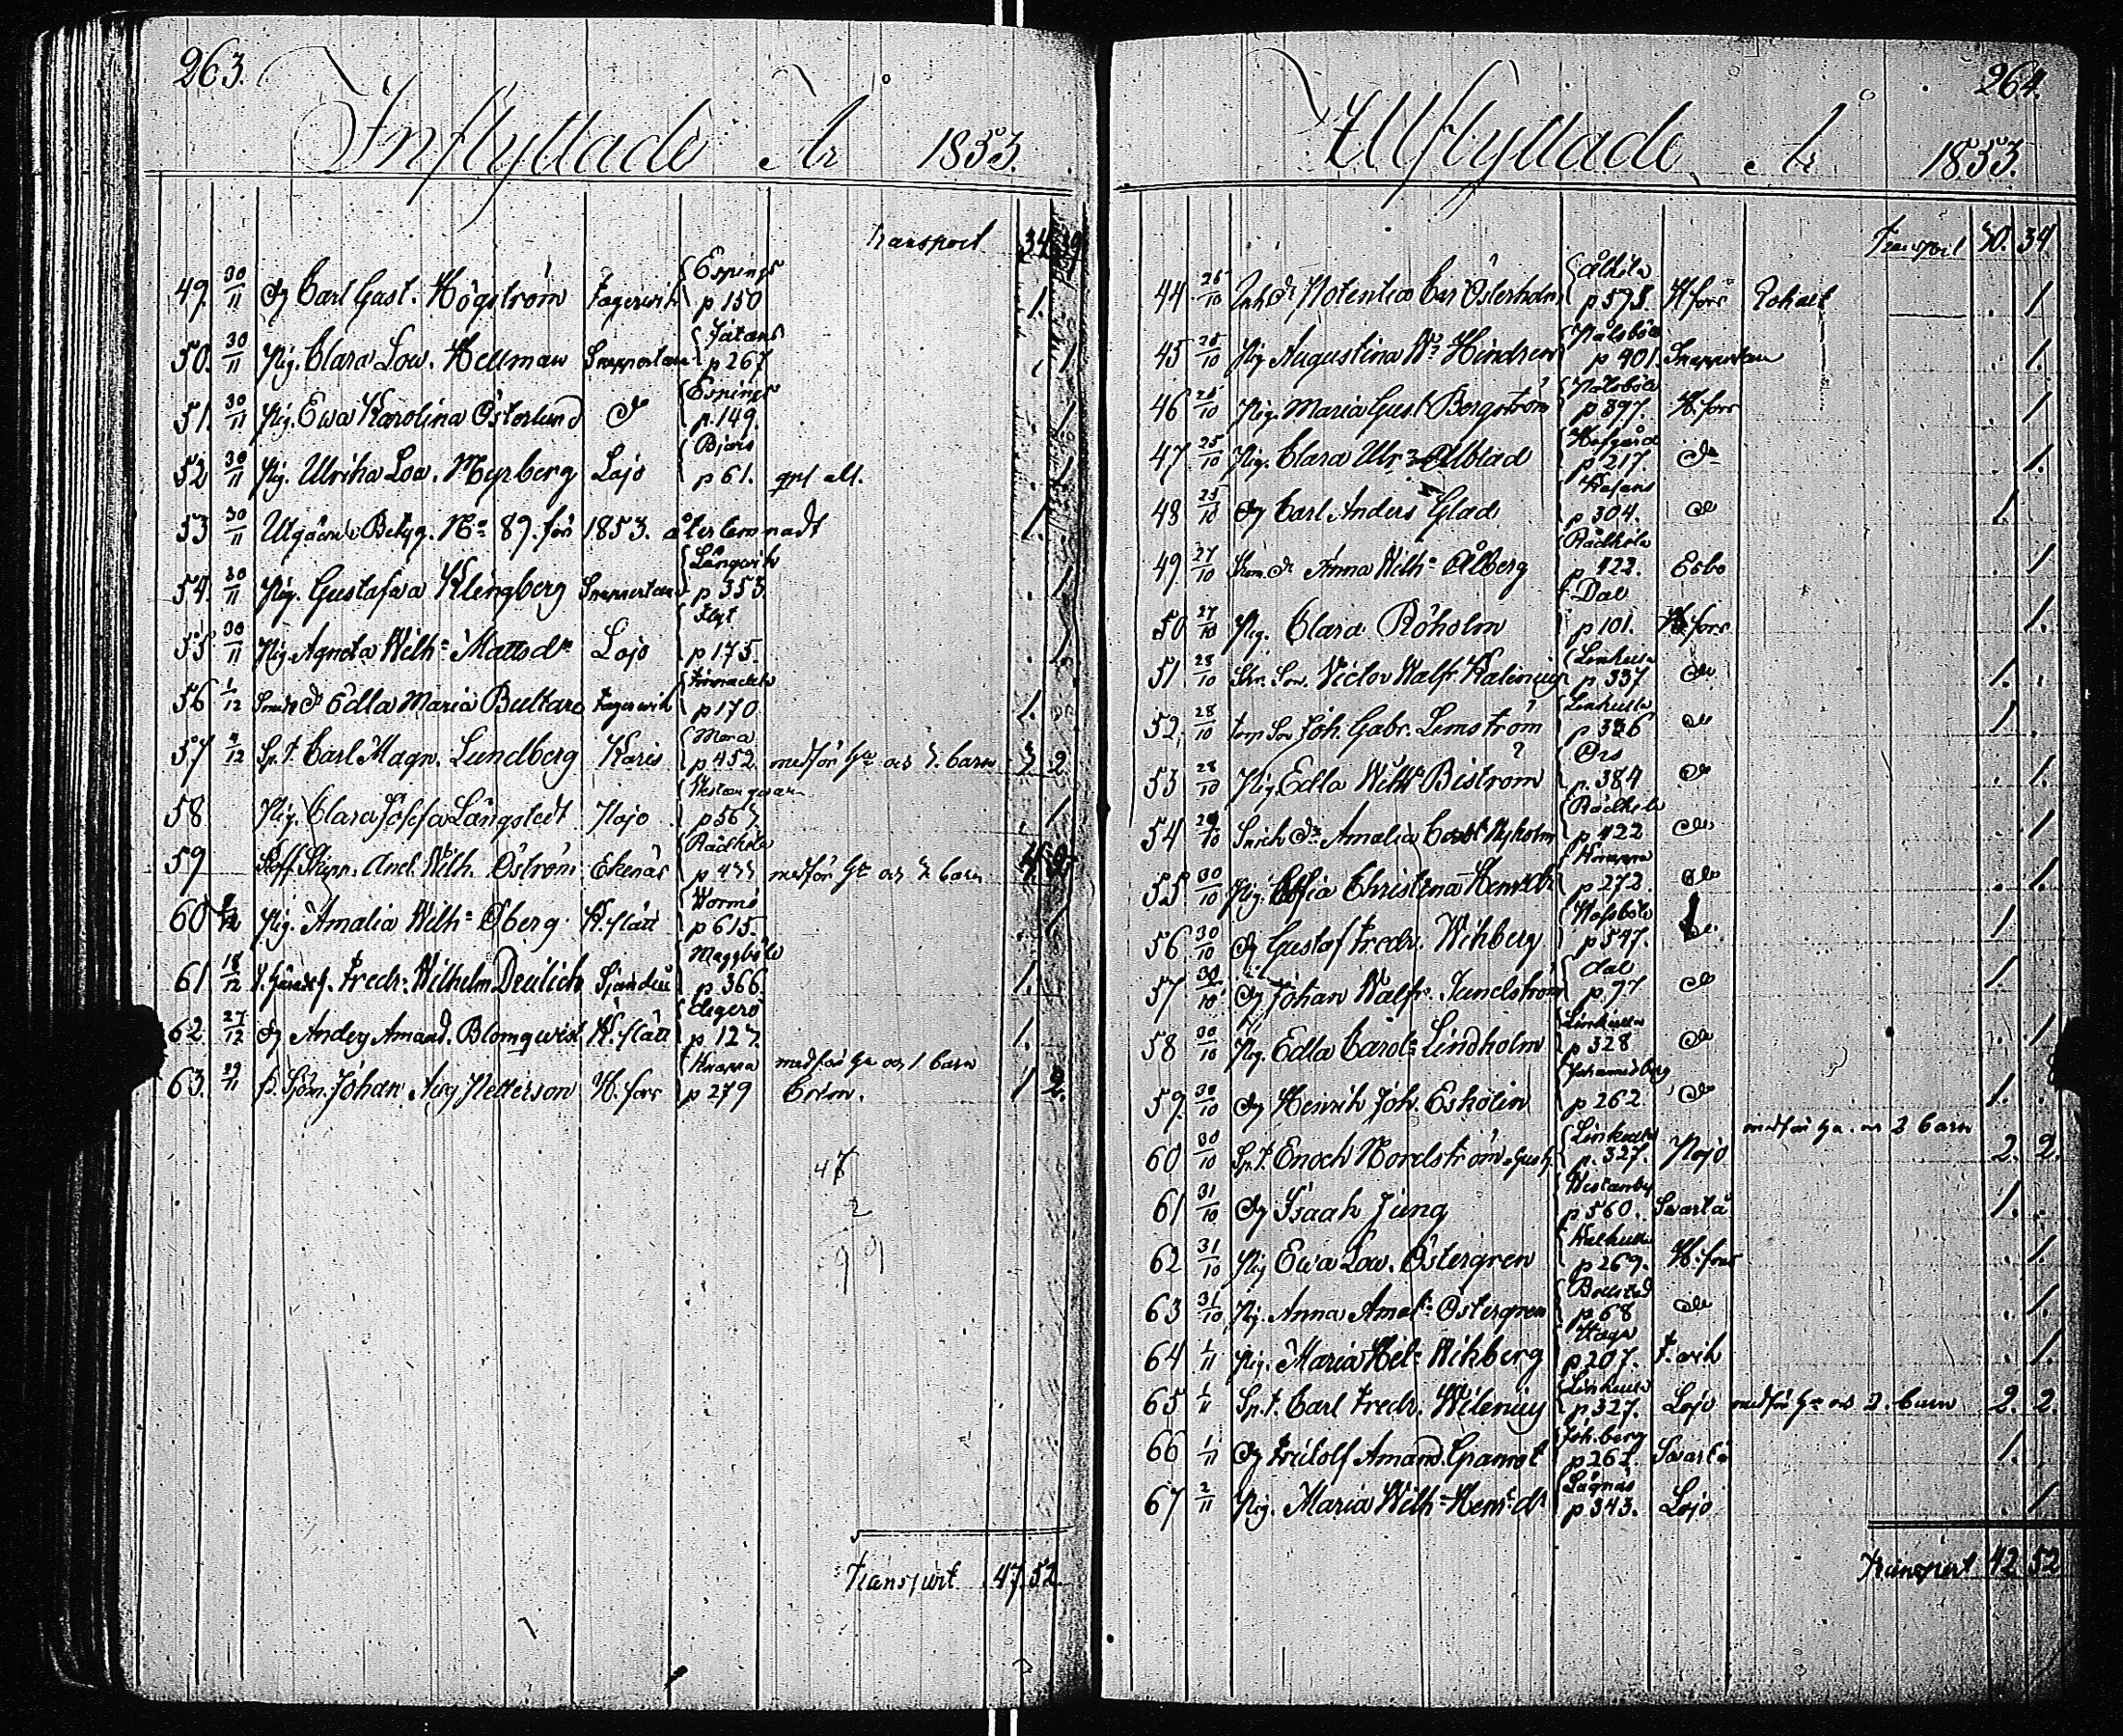 263.
Inflyttade År 1853.
Transport 34. 39
49. 30/11 Dg Carl Gust. Högström Fagervik Espings p 150 1.
50. 30/11 Pig. Clara Lov. Hellman Snappertuna Jätans p 267 1
51. 30/11 Pig. Ewa Karolina Österlund do Espings p. 149. 1
52 30/11 Pig. Ulrika Lov. Myrberg Lojo Bjärs p 61. 1.
53 30/11 Utgående Betyg. No 89. för 1853. återlemnadt 1.
54. 30/11 Pig. Gustafva Klingberg Snappertuna Långvik p 353 1
55 30/11 Pig. Agneta Wilh:a Mattsdr Lojo Flyt p 175. 1.
56 1/12 Edla Maria Bultars Fagervik p 170 1.
57 4/12 Sp. t. Carl Magn. Lundberg Karis Mora p 452 medför Hu och 3. barn 3 2
58 Pig. Clara Josefa Långstedt Pojo p 567 1
59 And. Wilh. Öström Ekenäs Rådkila medför Hu och barn
60 Pig. Amalia Wilh:a Öberg K. slätt Wormö p 615. 1
61 18/12 Fredr. Wilhelm Deutich Sjundeå Maggböle p 366. 1.
62 27/12 Dg Anders Amand. Blomqvist K. slätt Degerö p 127. 1.
63. 29/11 Johan Aug Petterson H. fors Knapra p 279 medför Hu och 1 barn 1 2.
47
2
99
Transport 47. 52.
264.
Utflyttade År 1853.
Transport 30. 34.
44. 25/10 Notentia Car Österholm Åkila p 595. H. fors 1
45 25/10 Pig Augustina Wa Hindren Pålsböle p 401. Snappertuna 1.
46 25/10 Pig. Maria Gust. Bergström Pålsböle p 397. H. fors 1
47. 25/10 Pig. Clara Ulr:a Alblad Hofgård p 217. do 1.
48 25/10 Dg Carl Anders Glad p 304. do 1.
49 27/10 Anna Wilh:a Ålberg Rådkila p 422. Esbo 1
50 27/10 Pig. Clara Röholm Dal p 101. H. fors 1.
51. 28/10 Victor Walfr. Kalenius Linkulla p. 337 do 1.
52. 28/10 Joh. Gabr. Lemström Linkulla p 326 do 1.
53 28/10 Pig. Edla Wilh:a Biström Ors p. 384 do 1.
54 29/10 Amalia Carol. Nyholm Rådkila p 422 do 1
55. 30/10 Pig. Christina Henr:dr Knapra p 272. do 1.
56. 30/10 Dg Gustaf Fredr. Wikberg p 547. do 1
57. 30/10 Dg Johan Walfr. Sundström Dal p. 97 do 1.
58 30/10 Pig. Edla Carol:a Lindholm Linkulla p 328 do 1.
59. 30/10 Dg Henrik Joh. Esholin Johannesberg p 262. do 1.
60 30/10 Sp. t. Enoch Nordström Linkulla p. 327. Pojo medför Hu. och 2 barn 2. 2.
61 31/10 Dg Isaak Jung Westanby p 560. Svartå 1.
62 31/10 Pig Ewa Lov. Östergren Kalkulla p 269. H. fors 1.
63 31/10 Pig. Anna Amal:a Östergren Bollstad p 68 do 1.
64 1/11 Pig. Maria Hel:a Wikberg Haga p 207. F. vik 1.
65 1/11 Sp. t. Carl Fredr. Wilenius Linkulla p 327. Lojo medför Hu och 2. barn 2. 2.
66 1/11 Dg Fridolf Amand. Granrot Joh. berg p 261 Svartå 1.
67 2/11 Pig. Maria Wilh:a Henr:dr Lågnäs p 343. Lojo 1
Transport 42 52